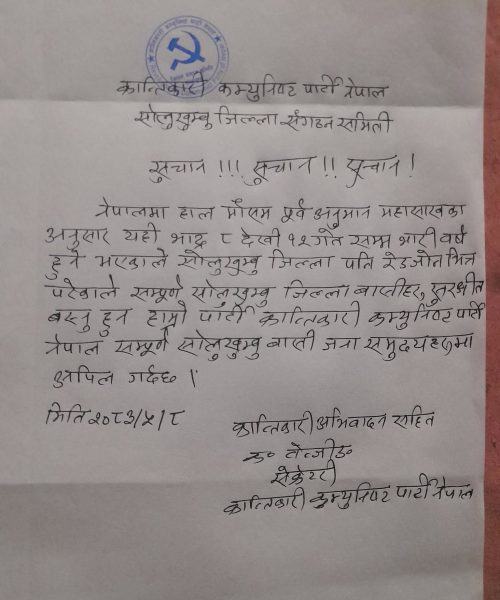 क्रान्तिकारी कम्युनिष्ट पार्टी नेपाल
सोलुखुम्बु जिल्ला संगठन समिती
सुचान !!! सुचान !! सुचान !
नेपालमा हाल मौसम पूर्व अनुमान महासाखका
अनुसार यही भाद्र ८ देखी १२ गते सम्म भारी वर्ष
हुने भएकाले सोलुखुम्बु जिल्ला पनि रेडजोन भित्र
परेकाले सम्पूर्ण सोलुखुम्बु जिल्ला बासीहरु, सुरक्षीत
बस्नु हुन हाम्रो पार्टी क्रान्तिकारी कम्युनिष्ट पार्टी
नेपाल सम्पूर्ण सोलुखुम्बु बासी जना समुदयहरुमा
अपिल गर्दछ ।
मिति २०८३/५/८
क्रान्तिकारी अभिवादन सहित
क० तेन्जीङ
सेक्रेटरी
क्रान्तिकारी कम्युनिष्ट पार्टी नेपाल